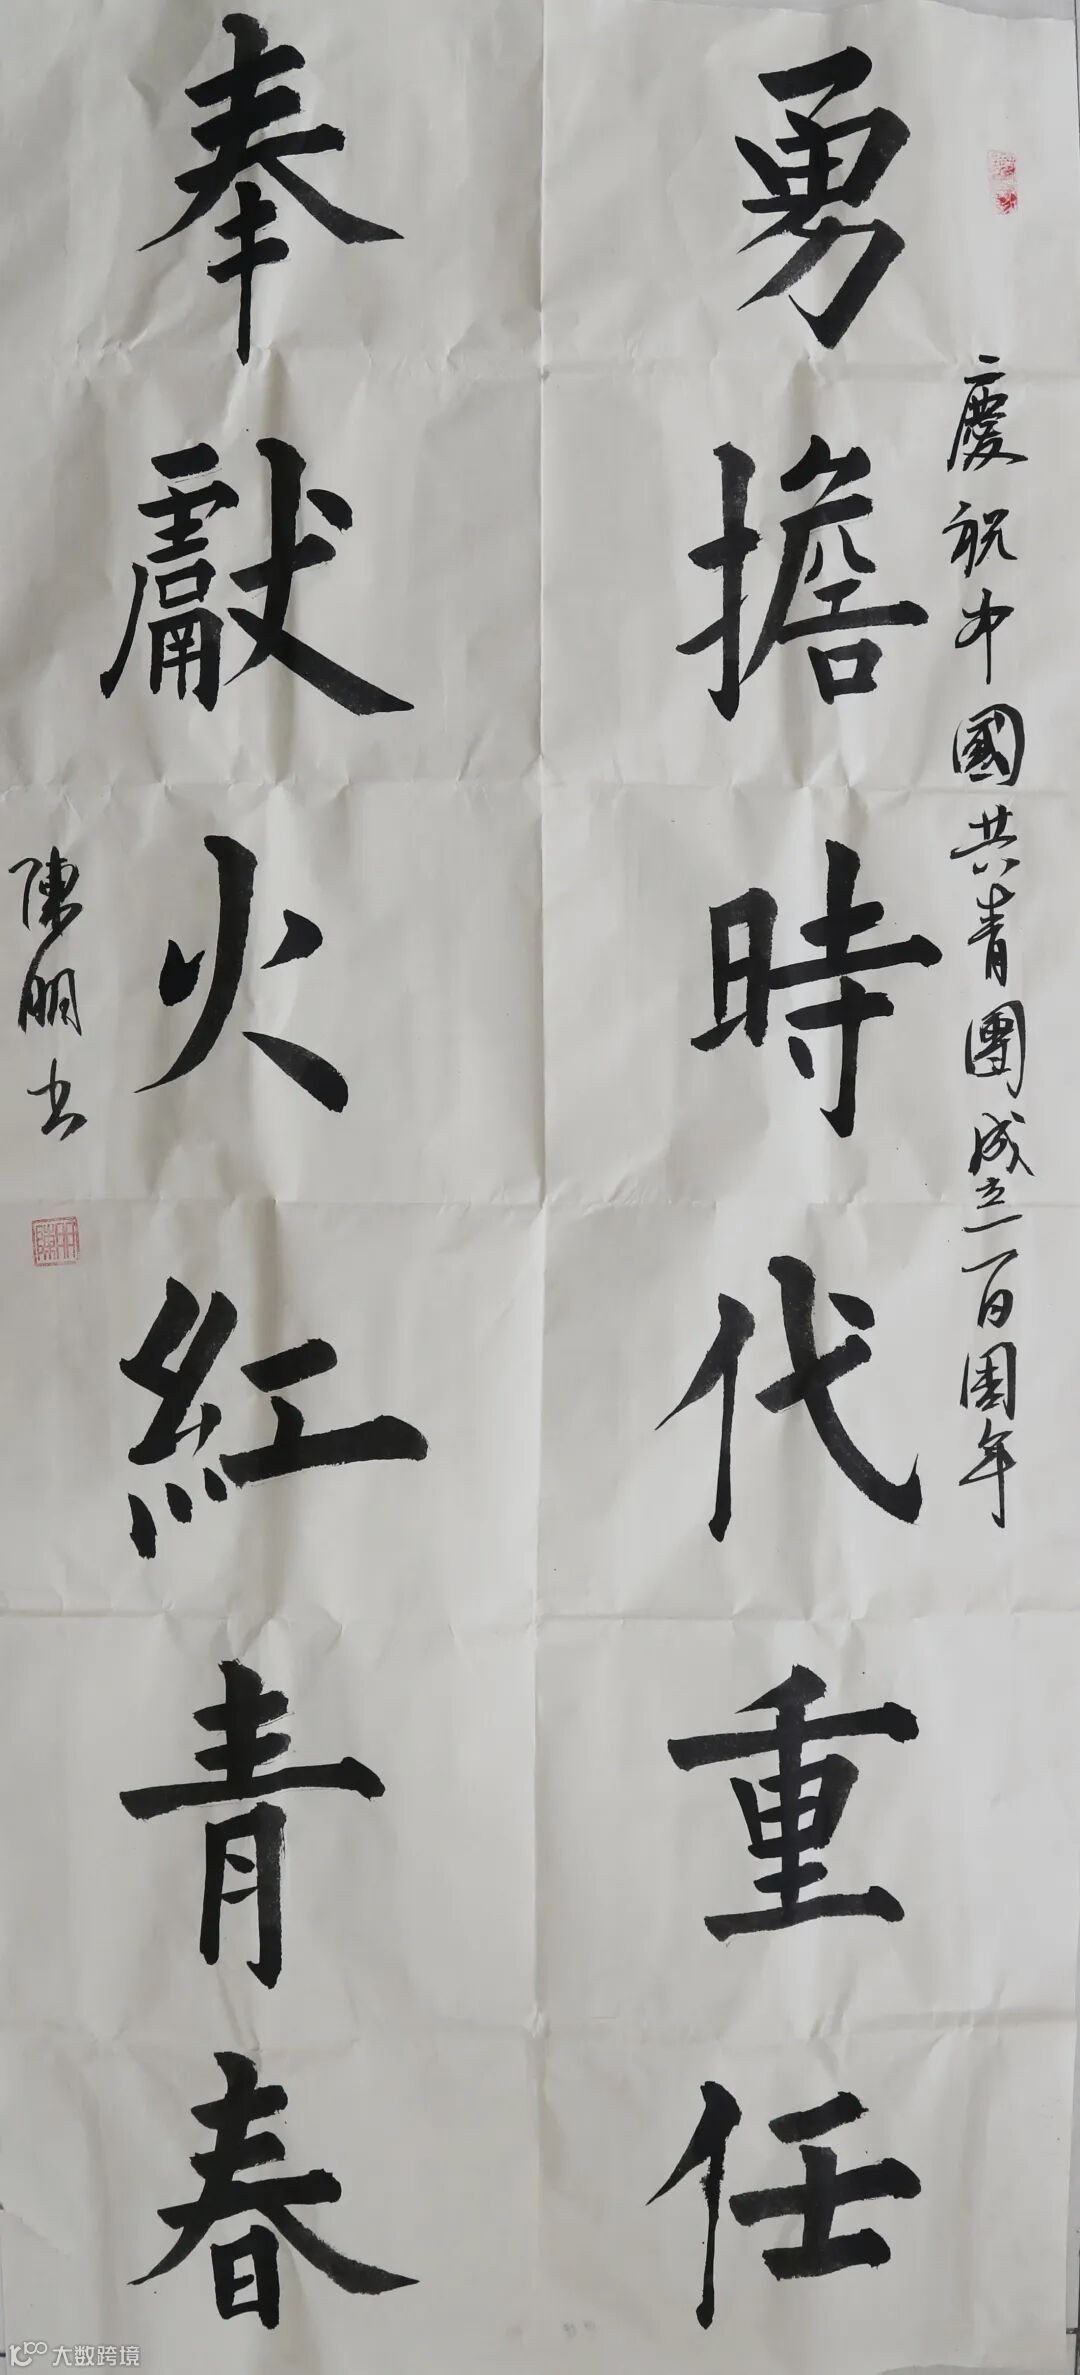 慶祝中國共青團成立一百周年
勇擔時代重任
奉獻火紅青春
陳明书
陳明
大数跨境